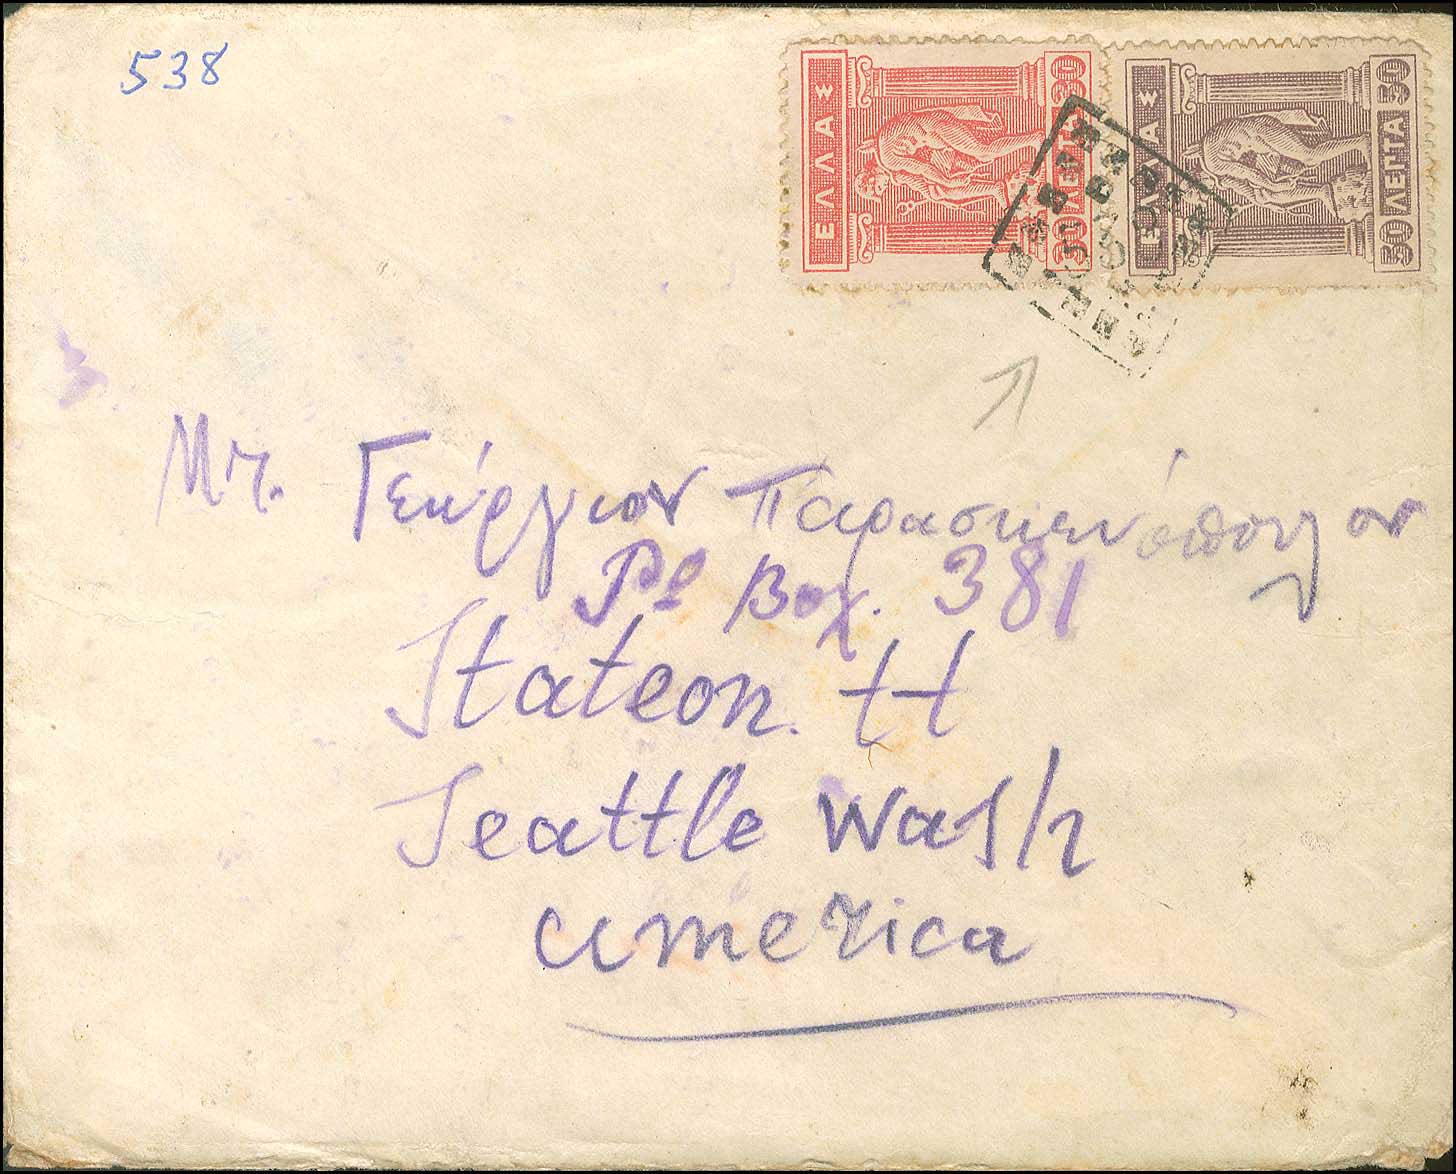 538
ΕΛΛΑΣ 30 ΛΕΠΤΑ 30
ΕΛΛΑΣ 50 ΛΕΠΤΑ 50
Mr. Γεώργιον Παρασκευόπουλον
Po Box. 381
Stateon. H
Seattle Wash
america